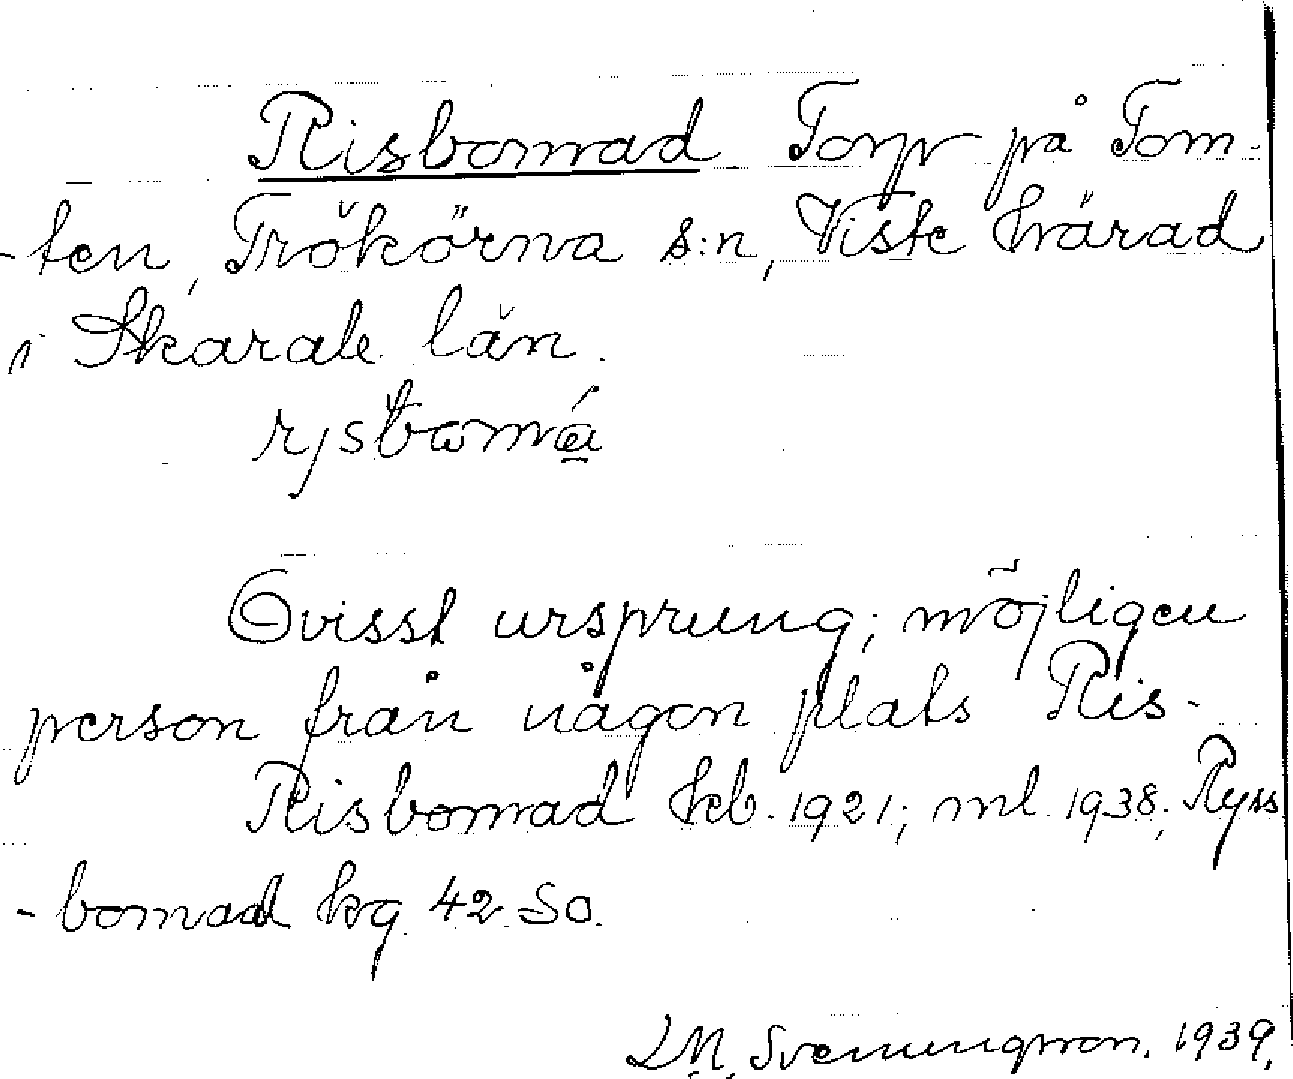 Risbomad Torp på Tom-
-ten, Trökörna s:n, Viste härad
i Skarab. län.
Ovisst ursprung; möjligen
person från någon plats Ris-
Risbomad kb. 1921; ml. 1938; Ryss
-bomad kg. 42 SO.
Svenungsson. 1939.